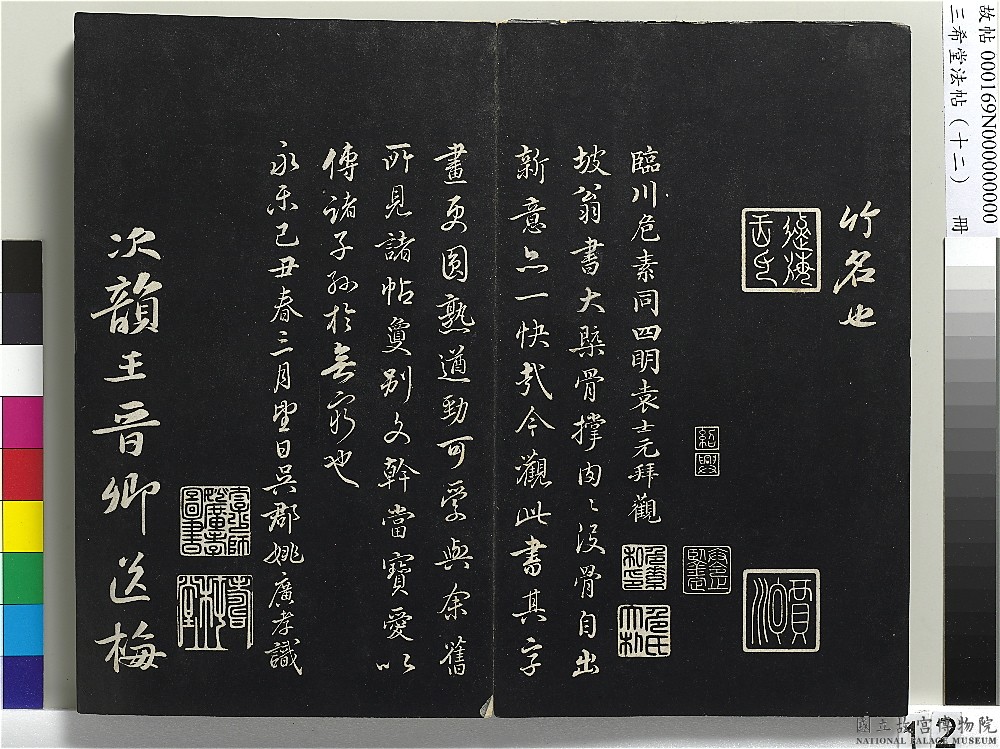 故帖 000169N000000000
三希堂法帖（十二） 冊
竹名也
紹興
賈
臨川危素同四明袁士元拜觀
危氏
坡翁書大槩骨撐肉〻沒骨自出
新意亦一快哉今觀此書其字
畫更圓熟遒勁可愛與余舊
所見諸帖夐別文幹當寶愛以
傳諸子孫於無窮也
永樂己丑春三月望日吳郡姚廣孝識
次韻王晉卿送梅
國立故宮博物院
NATIONAL PALACE MUSEUM
12